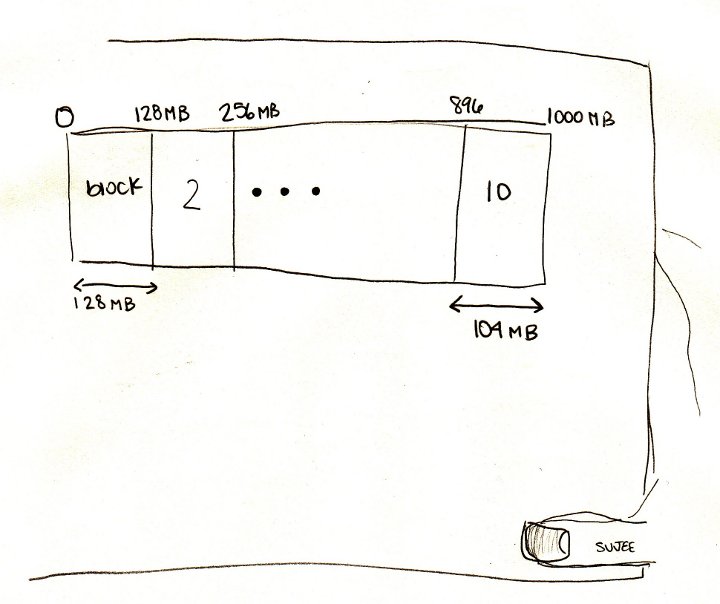 0 128MB 256MB 896 1000MB
block 2 • • • 10
128MB 104MB
SUJEE